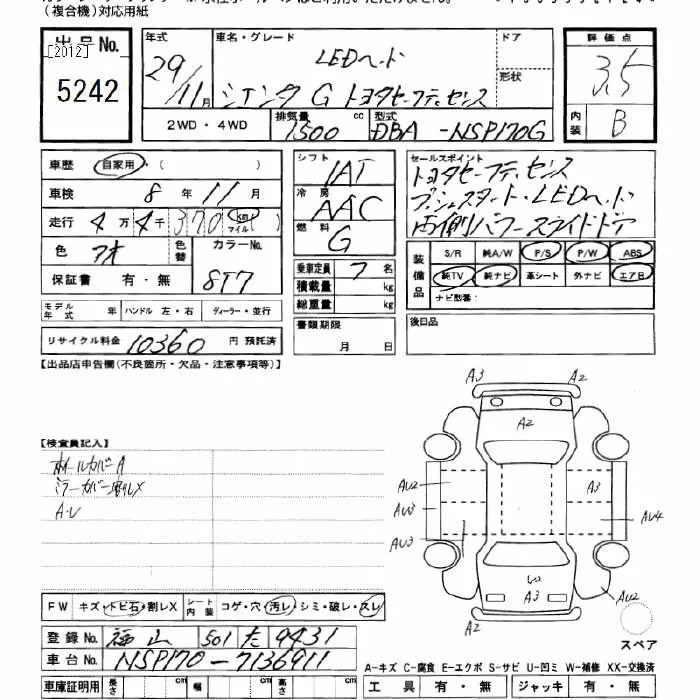 (複合機)対応用紙
出品No.
[2012]
5242
年式 29/11月
車名・グレード LEDヘッド
シエンタ G トヨタセーフティセンス
ドア
形状
2WD・4WD
排気量 1500 cc
型式 DBA-NSP170G
評価点
3.5
内装 B
車歴 自家用・( )
車検 8年 11月
走行 4万4千370 km マイル
色 アオ 色替 カラーNo. 8T7
保証書 有・無
モデル年式 年 ハンドル 左・右 ディーラー・並行
リサイクル料金 10360 円 預託済
シフト IAT
冷房 AAC
燃料 G
乗車定員 7 名
積載量 kg
総重量 kg
書類期限
月 日
セールスポイント
トヨタセーフティセンス
プッシュスタート・LEDヘッド
両側パワースライドドア
装備品 S/R 純A/W P/S P/W ABS
純TV 純ナビ 革シート 外ナビ エアB
ナビ型番:
後日品
【出品店申告欄(不良箇所・欠品・注意事項等)】
【検査員記入】
ホイールカバーA
ミラーカバー割レX
A・U
A3 A2
A2
AU2 A3
AU3 AU4
AU3
A3 AU2
A2
スペア
FW キズ・トビ石・割レX シート内装 コゲ・穴・汚レ・シミ・破レ・スレ
登録No. 福山 501 た 9431
車台No. NSP170-7136911
A-キズ C-腐食 E-エクボ S-サビ U-凹ミ W-補修 XX-交換済
車庫証明用 長さ cm 幅 cm 高さ cm
工具 有・無 ジャッキ 有・無